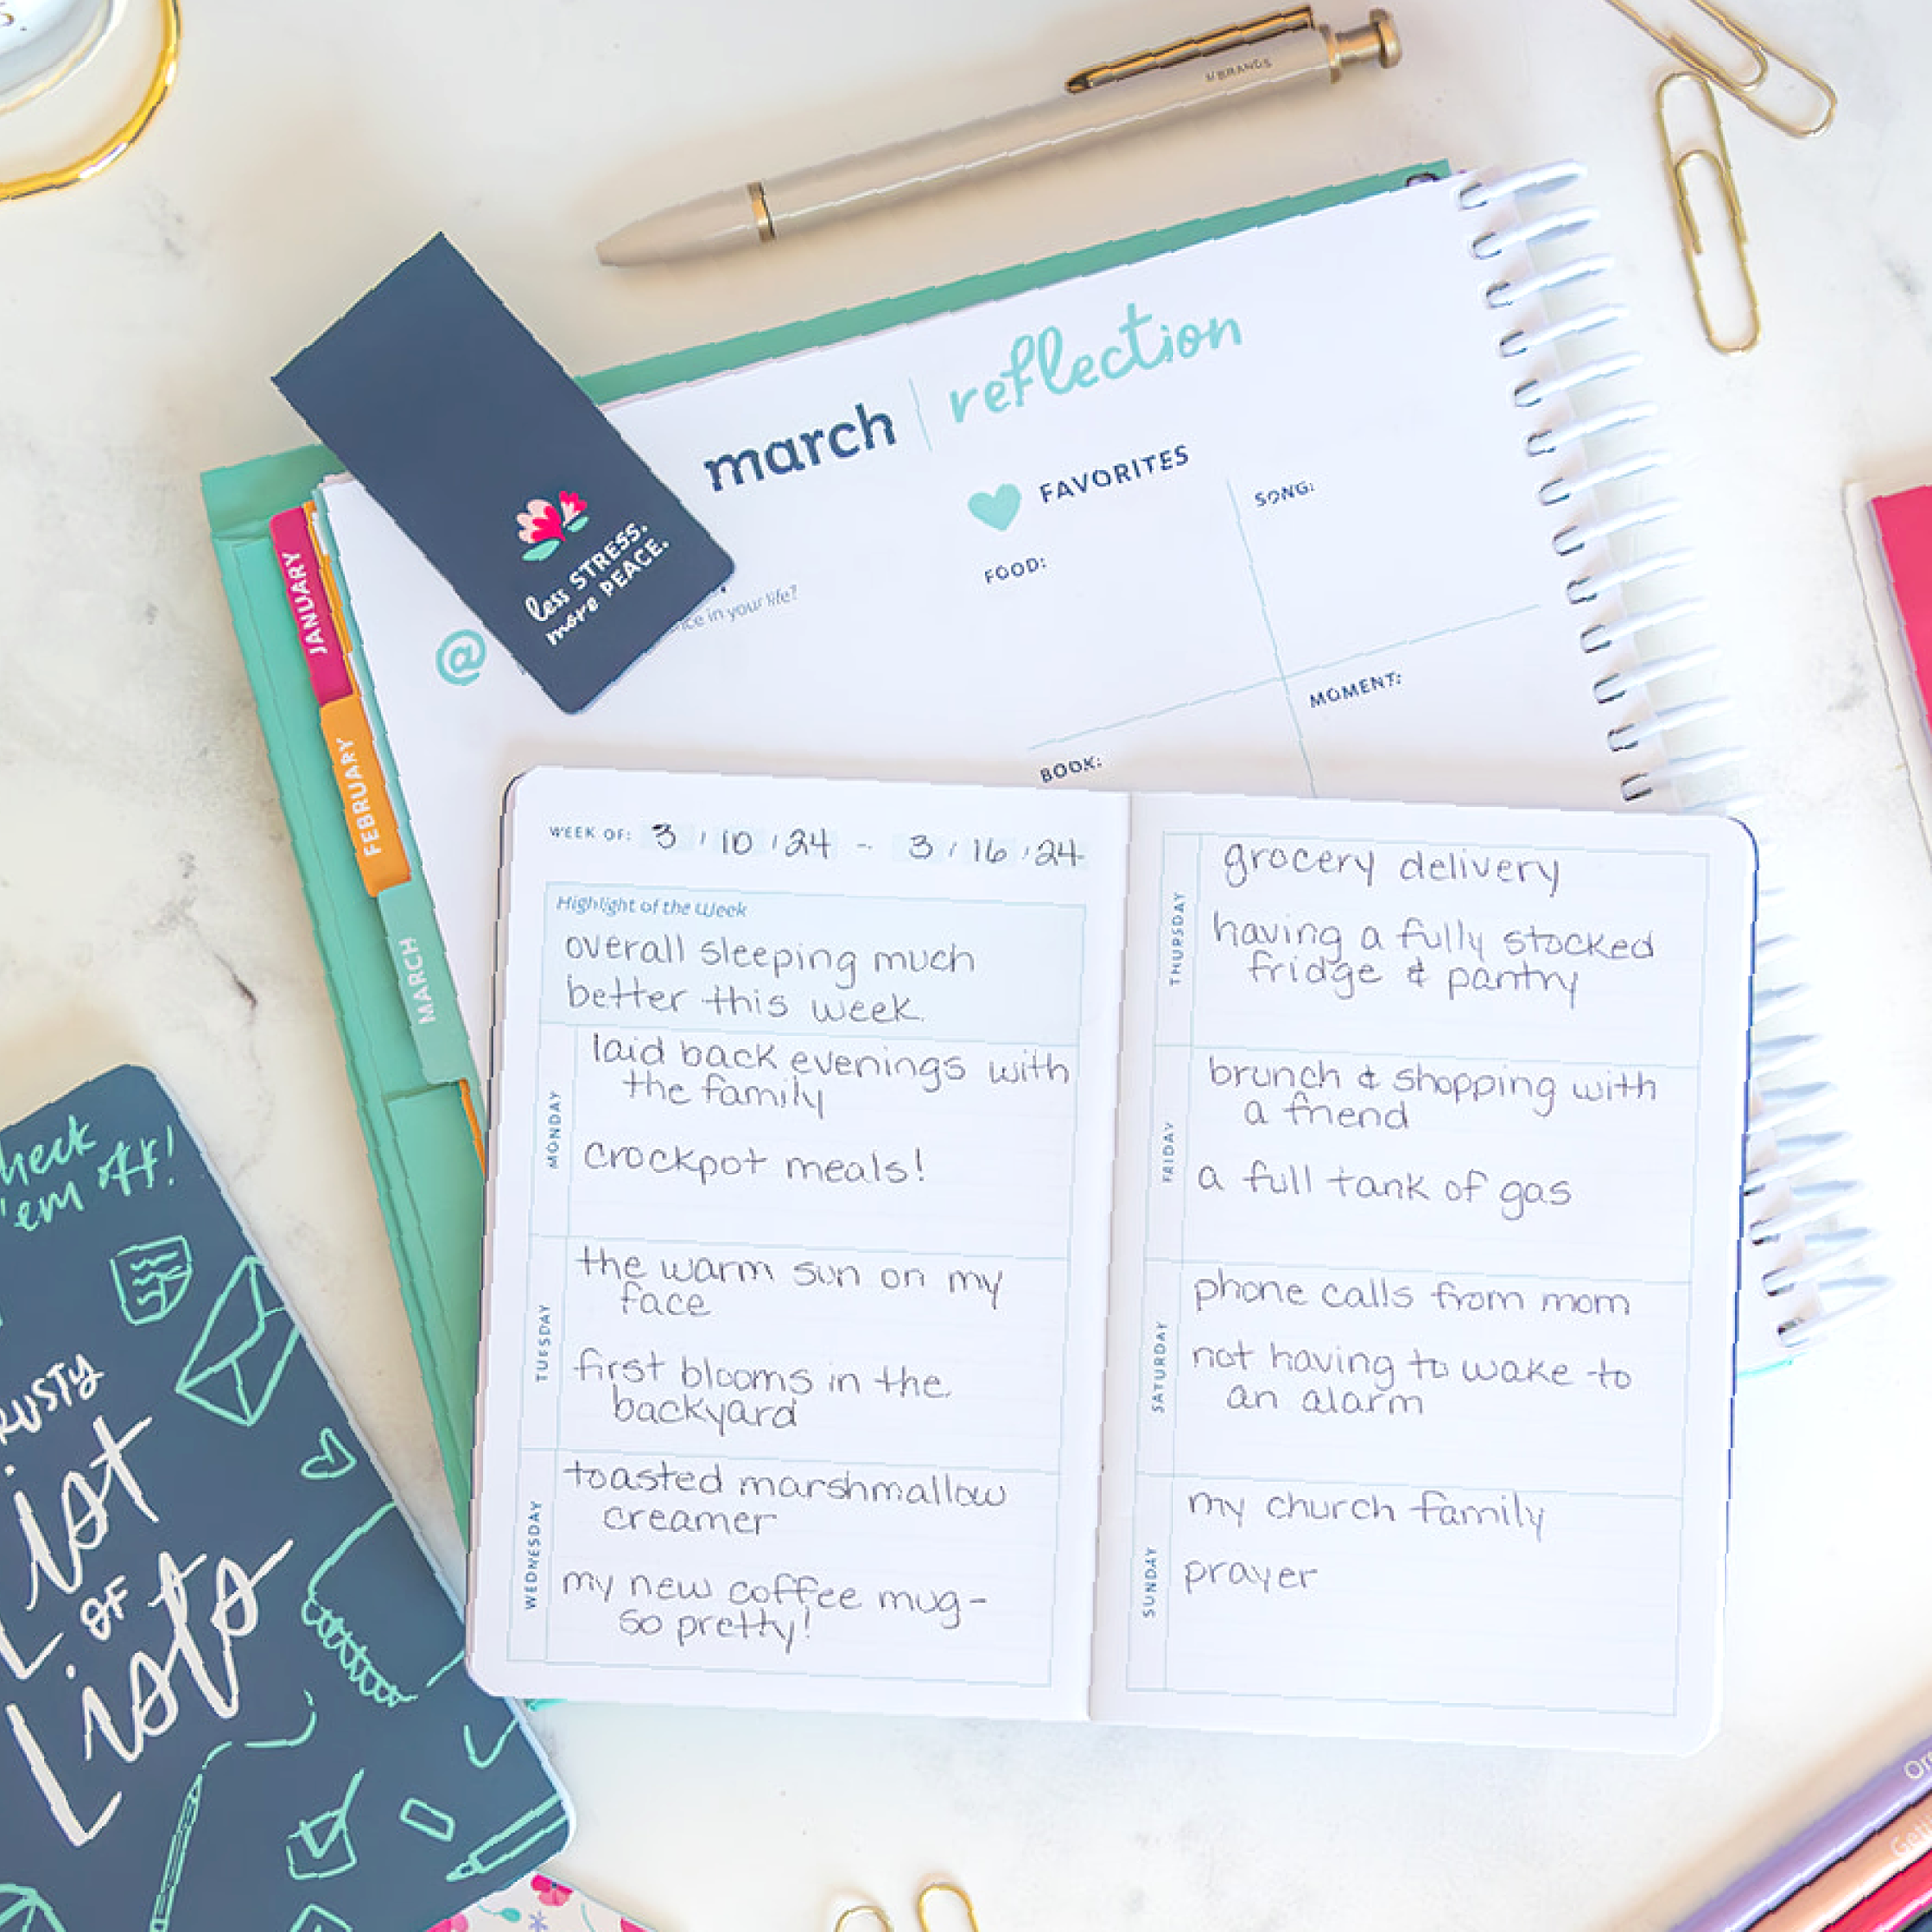 #BRANDS
march | reflection
FAVORITES
SONG:
FOOD:
less STRESS.
more PEACE.
in your life?
@
MOMENT:
BOOK:
JANUARY
FEBRUARY
MARCH
WEEK OF: 3 / 10 / 24 - 3 / 16 / 24
Highlight of the Week
overall sleeping much
better this week.
MONDAY
laid back evenings with
the family
crockpot meals!
TUESDAY
the warm sun on my
face
first blooms in the
backyard
WEDNESDAY
toasted marshmallow
creamer
my new coffee mug-
so pretty!
THURSDAY
grocery delivery
having a fully stocked
fridge & pantry
FRIDAY
brunch & shopping with
a friend
a full tank of gas
SATURDAY
phone calls from mom
not having to wake to
an alarm
SUNDAY
my church family
prayer
heck
'em off!
RUSTY
List
OF
Lists